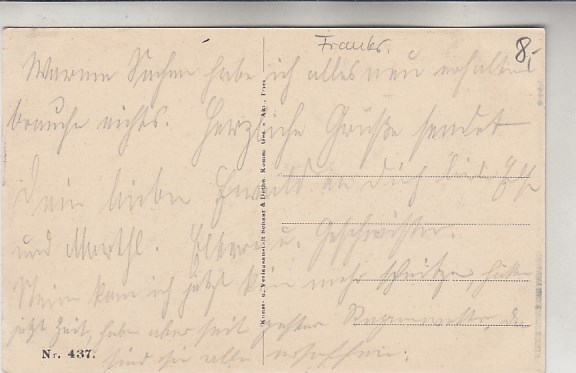 Frankr.
8,-
Warme Sachen habe ich alles neu erhalten
brauche nichts. Herzliche Grüße sendet
Dein lieber Ewald an Dich liebe
und Marthl. Eltern u. Geschwister.
kann ich jetzt kein mehr
jetzt Zeit, haben aber seit gestern Regenwetter, da
sind sie alle
Kunst- u. Verlagsanstalt Schaar & Dathe, Komm.-Ges. a. Akt., Trier
Nr. 437.